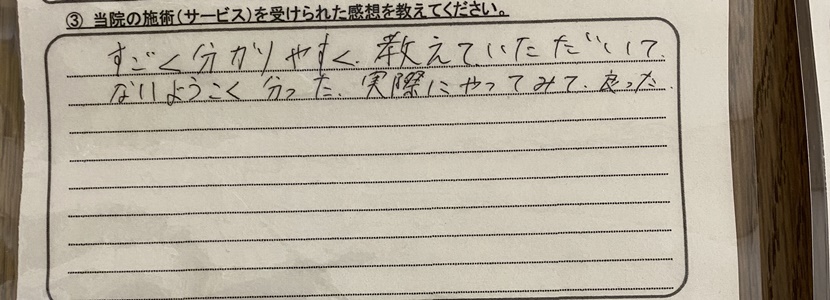 ③ 当院の施術(サービス)を受けられた感想を教えてください。
すごく分かりやすく、教えていただいて、
ないようこく分った、実際にやってみて、良った。